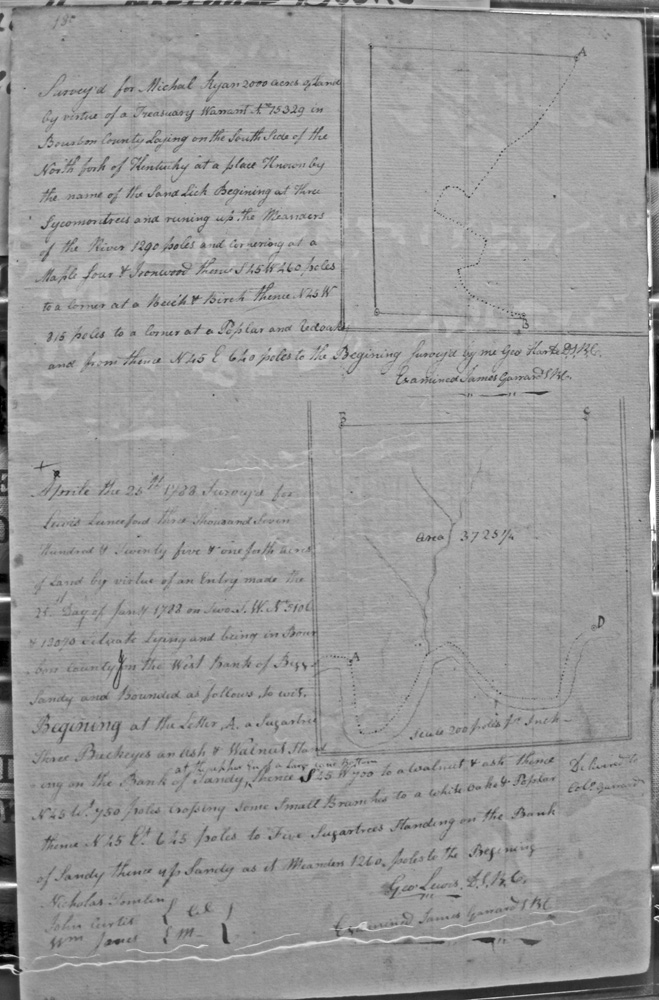 Survey'd for Michal Ryan 2000 acres of Land
by virtue of a Treasuary Warrant No 15329 in
Bourbon County Laying on the South Side of the
North fork of Kentucky at a place Known by
the name of the Sand Lick Begining at three
Sycomontrees and runing up the Meanders
of the River 1290 poles and cornering at a
Maple four & Ironwood thence S 45 W 460 poles
to a corner at a Beich & Birch thence N 45 W
815 poles to a corner at a Poplar and Redoak
and from thence N 45 E 640 poles to the Begining Survey'd by me Geo
Examined James Garrard S.B.C.
A
B
Aprile the 25th 1788 Survey'd for
Lewis three thousand Seven
Hundred & Twenty five & one forth acres
of Land by virtue of an Entry made the
Day of Jany 1788 on two T. W. No
& Situate Lying and being in Bour
bon County on the West Bank of Bigg
Sandy and Bounded as follows to wit,
Begining at the Letter A. a Sugartree
three Buckeyes an ash & Walnut Stand
ing on the Bank of Sandy, at the upper end of a Large bottom thence S 45 W 700 to a walnut & ash thence
N 45 Wt 750 poles crossing some Small Branches to a white oake & Poplar
thence N 45 Et 645 poles to Five Sugartrees Standing on the Bank
of Sandy thence up Sandy as it Meanders 1260. poles to the Begining
B
C
area 3725¼
D
A
Scale 200 poles pr Inch
Delivered to
Colo. Garrard
Geo Lewis, D.S.B.C.
Nicholas Tomlin
John Curtis } C.C.
Wm Janes } M
Examined James Garrard S.B.C.